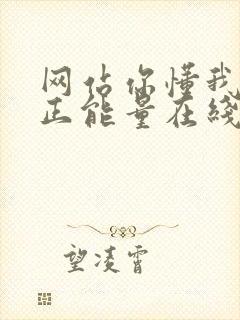 网站你懂我
正能量在线
望凌霄